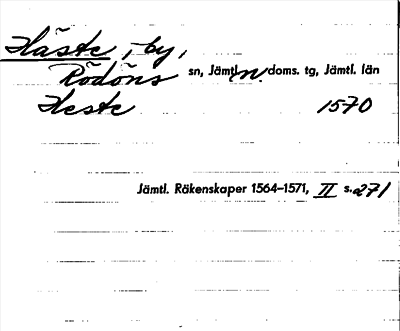 Häste, by,
Rödöns sn, Jämtl. n. doms. tg, Jämtl. län
Heste 1570
Jämtl. Räkenskaper 1564–1571, II s. 271